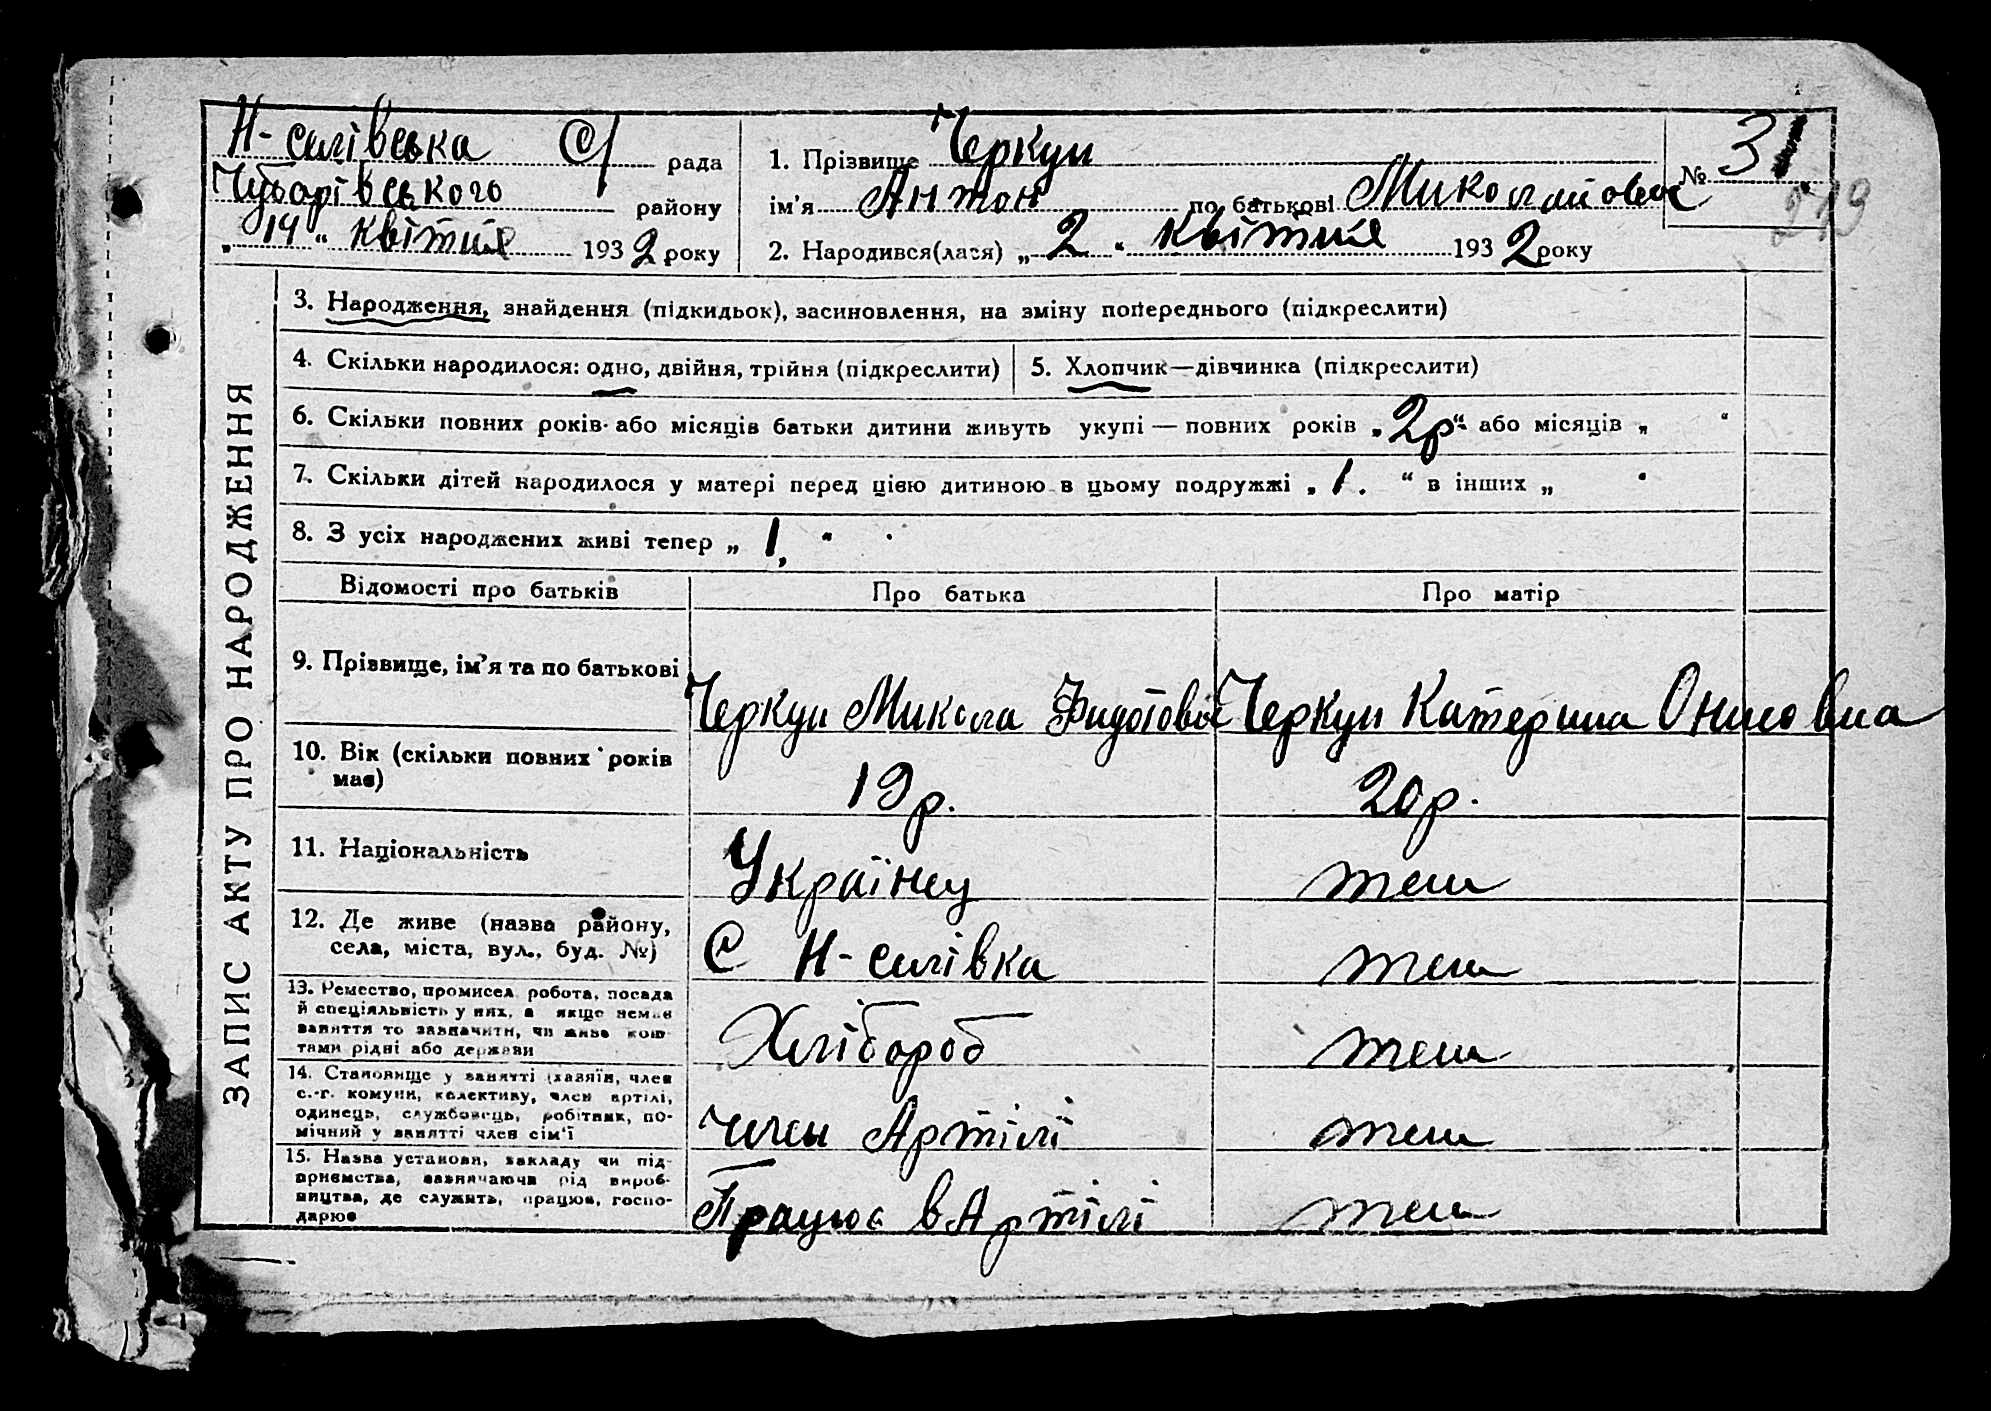 Н-селівська С/ рада
Чубарівського району
„ 14 “ квітня 1932 року
1. Прізвище Черкун
ім'я Антон по батькові Миколайович
2. Народився(лася) „ 2 “ квітня 1932 року
№ 31.
219
ЗАПИС АКТУ ПРО НАРОДЖЕННЯ
3. Народження, знайдення (підкидьок), засиновлення, на зміну попереднього (підкреслити)
4. Скільки народилося: одно, двійня, трійня (підкреслити)
5. Хлопчик—дівчинка (підкреслити)
6. Скільки повних років або місяців батьки дитини живуть укупі — повних років „ 2р “ або місяців „ “
7. Скільки дітей народилося у матері перед цією дитиною в цьому подружжі „ 1. “ в інших „ “
8. З усіх народжених живі тепер „ 1, “
Відомості про батьків Про батька Про матір
9. Прізвище, ім'я та по батькові
Черкун Микола Черкун Катерина
10. Вік (скільки повних років
має)
19р. 20р.
11. Національність
Українец теш
12. Де живе (назва району,
села, міста, вул., буд. №)
С Н-селівка теш
13. Ремество, промисел робота, посада
й спеціяльність у них, а якщо немає
заняття то зазначити, чи живе кош-
тами рідні або держави
Хлібороб теш
14. Становище у занятті (хазяїн, член
с.-г. комуни, колективу, член артілі,
одинець, службовець, робітник, по-
мічний у занятті член сім'ї
член Артілі теш
15. Назва установи, закладу чи під-
приємства, зазначаючи рід вироб-
ництва, де служить, працює, госпо-
дарює
Працює в Артілі теш